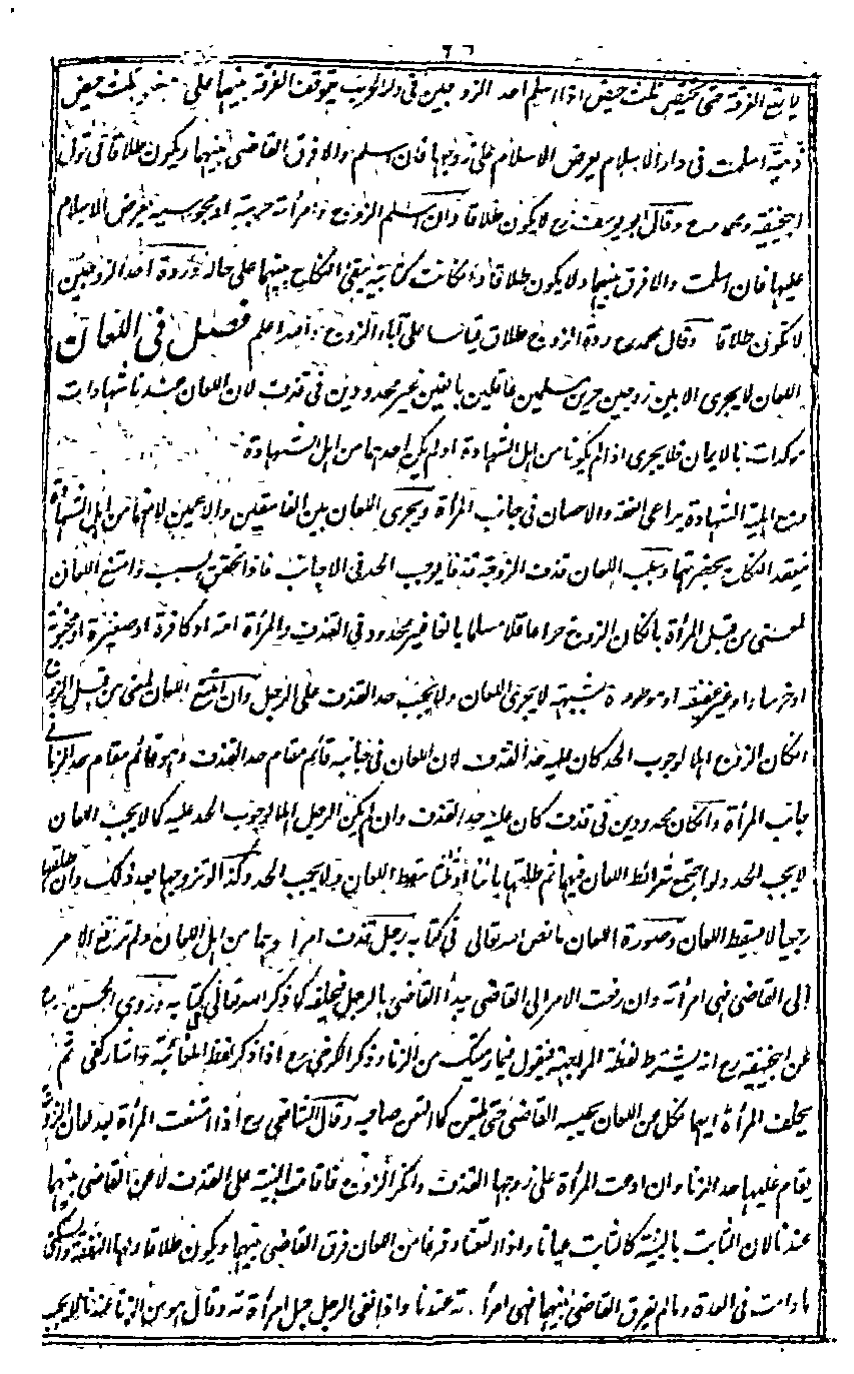 لا يقع الفرقة حتى تحيض ثلث حيض اذا اسلم احد الزوجين فى دار الحرب يتوقف الفرقة بينهما على ثلث حيض
ذمية اسلمت فى دار الاسلام يعرض الاسلام على زوجها فان اسلم والا فرق القاضى بينهما ويكون طلاقا فى قول
ابيحنيفة ومحمد رح وقال ابو يوسف رح لا يكون طلاقا وان اسلم الزوج وامرأته حربية او مجوسية يعرض الاسلام
عليها فان اسلمت والا فرق بينهما ولا يكون طلاقا وان كانت كتابية يبقى النكاح بينهما على حاله وردة احد الزوجين
لا يكون طلاقا وقال محمد رح ردة الزوج طلاق قياسا على آباء الزوج والله اعلم فصل فى اللعان
اللعان لا يجرى الا بين زوجين حرين مسلمين عاقلين بالغين غير محدودين فى قذف لان اللعان عندنا شهادات
مؤكدات بالايمان فلا يجرى اذا لم يكونا من اهل الشهادة او لم يكن احدهما من اهل الشهادة
ومع اهلية الشهادة يراعى العفة والاحصان فى جانب المرأة ويجرى اللعان بين الفاسقين والاعميين لانهما من اهل الشهادة
فينعقد النكاح بحضرتهما وسبب اللعان قذف الزوجة قذفا يوجب الحد فى الاجانب فاذا تحقق السبب وامتنع اللعان
لمعنى من قبل المرأة بان كان الزوج حرا عاقلا مسلما بالغا غير محدود فى القذف والمرأة امة او كافرة او صغيرة او مجنونة
او خرساء او غير عفيفة او موطوءة بشبهة لا يجرى اللعان ولا يجب حد القذف على الرجل وان امتنع اللعان لمعنى من قبل الزوج
ان كان الزوج اهلا لوجوب الحد كان عليه حد القذف لان اللعان فى جانبه قائم مقام حد القذف وهو قائم مقام حد الزنا فى
جانب المرأة وان كان محدودين فى قذف كان عليه حد القذف وان لم يكن الرجل اهلا لوجوب الحد عليه كما لا يجب اللعان
لا يجب الحد ولو اجتمع شرائط اللعان فيهما ثم طلقها بائنا او ثلثا سقط اللعان ولا يجب الحد وكذا لو تزوجها بعد ذلك وان طلقها
رجعيا لا يسقط اللعان وصورة اللعان ما نص الله تعالى فى كتابه رجل قذف امرأ وهما من اهل اللعان ولم ترفع الامر
الى القاضى فهى امرأته وان رفعت الامر الى القاضى يبدأ القاضى بالرجل فيحلفه كما ذكر الله تعالى فى كتابه وروى الحسن رح
عن ابيحنيفة رح انه يشترط لفظة المواجهة فيقول فيما رميتك من الزنا وذكر الكرخى رح اذا ذكر لفظ المغائبة واشار كفى ثم
يحلف المرأة ايهما نكل من اللعان يحبسه القاضى حتى يلتعن كما التعن صاحبه وقال الشافعى رح اذا امتنعت المرأة بعد لعان الزوج
يقام عليها حد الزنا وان ادعت المرأة على زوجها القذف وانكر الزوج فاقامت البينة على القذف لاعن القاضى بينهما
عندنا لان الثابت بالبينة كالثابت عيانا واذا التعنا وفرغا من اللعان فرق القاضى بينهما ويكون طلاقا ولها النفقة والسكنى
ما دامت فى العدة وما لم يفرق القاضى بينهما فهى امرأته عندنا واذا نفى الرجل حبل امرأته وقال هو من الزنا عندنا لا يجب